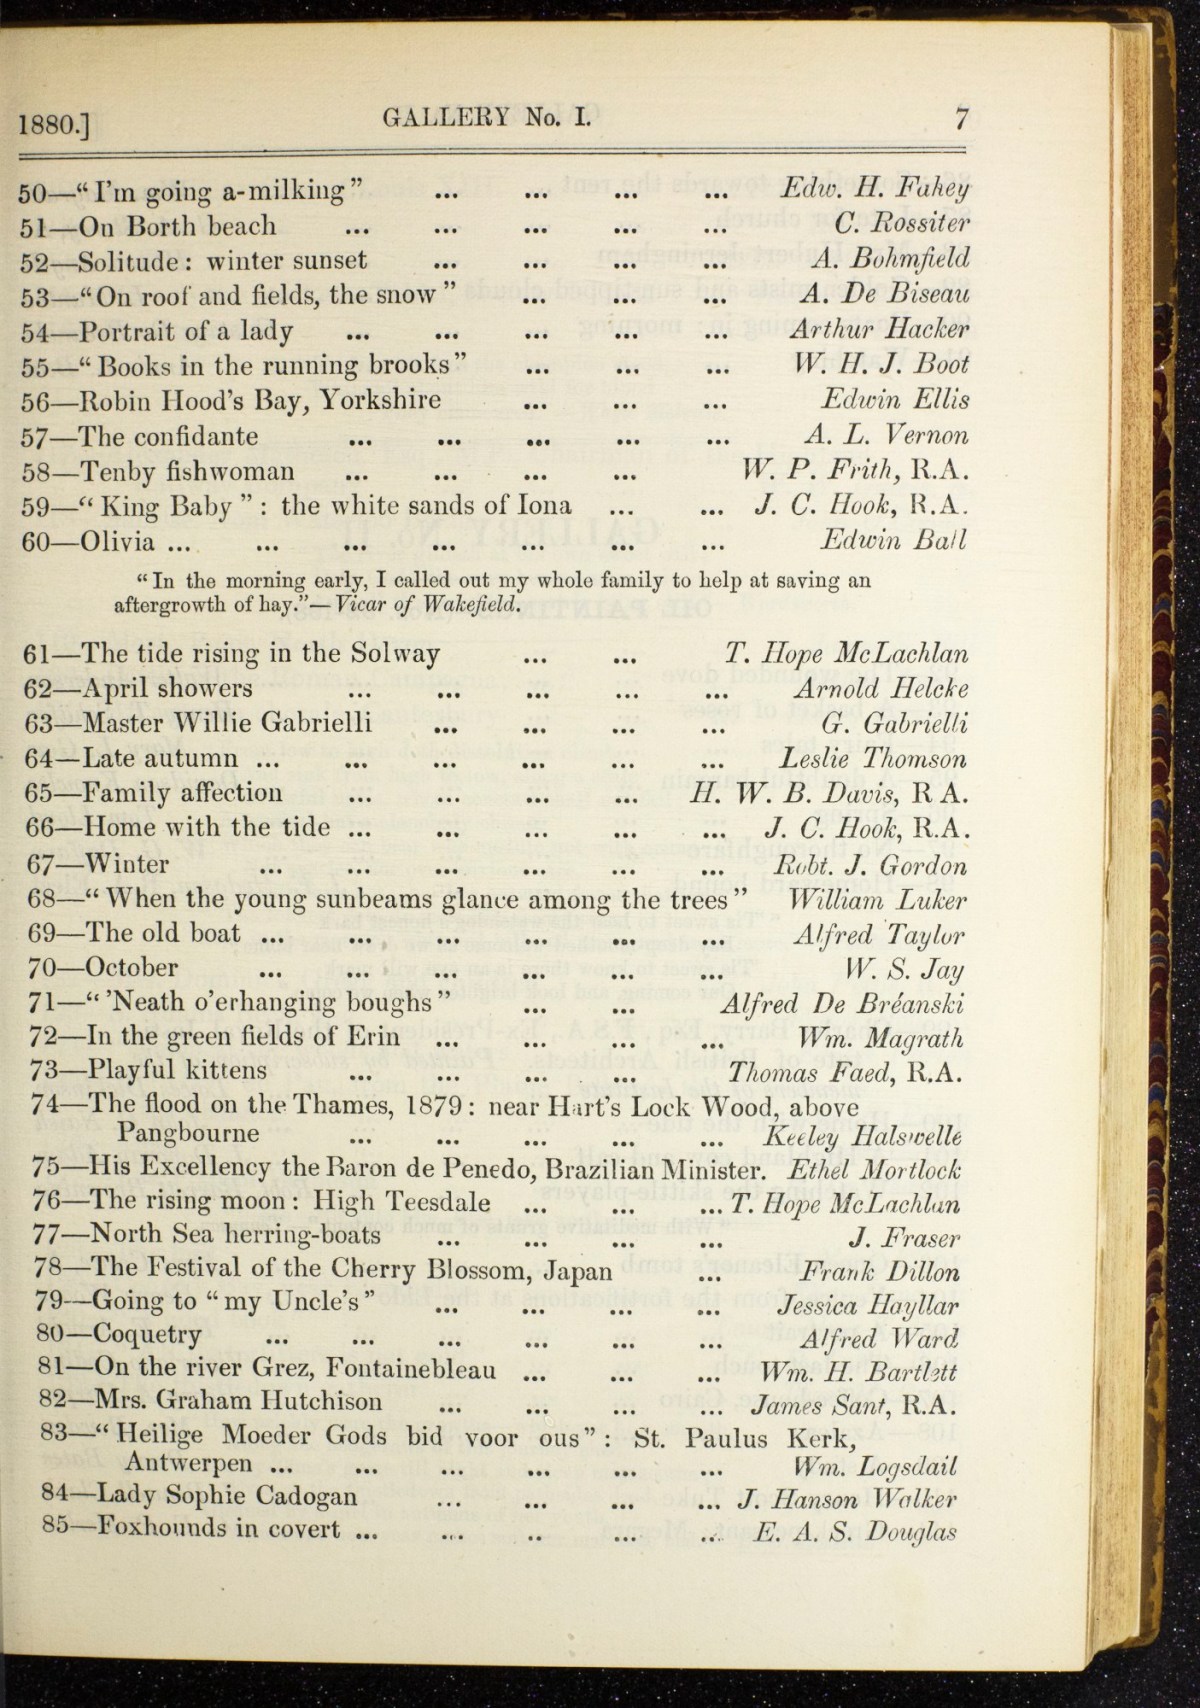 1880.] GALLERY No. I. 7
50—“I'm going a-milking” ... ... ... ... Edw. H. Fahey
51—On Borth beach ... ... ... ... ... C. Rossiter
52—Solitude: winter sunset ... ... ... ... A. Bohmfield
53—“On roof and fields, the snow” ... ... ... A. De Biseau
54—Portrait of a lady ... ... ... ... ... Arthur Hacker
55—“Books in the running brooks” ... ... ... W. H. J. Boot
56—Robin Hood's Bay, Yorkshire ... ... ... Edwin Ellis
57—The confidante ... ... ... ... ... A. L. Vernon
58—Tenby fishwoman ... ... ... ... W. P. Frith, R.A.
59—“King Baby”: the white sands of Iona ... ... J. C. Hook, R.A.
60—Olivia ... ... ... ... ... ... ... Edwin Ball
“In the morning early, I called out my whole family to help at saving an
aftergrowth of hay.”—Vicar of Wakefield.
61—The tide rising in the Solway ... ... T. Hope McLachlan
62—April showers ... ... ... ... ... Arnold Helcke
63—Master Willie Gabrielli ... ... ... ... G. Gabrielli
64—Late autumn ... ... ... ... ... ... Leslie Thomson
65—Family affection ... ... ... ... H. W. B. Davis, R A.
66—Home with the tide ... ... ... ... ... J. C. Hook, R.A.
67—Winter ... ... ... ... ... ... Robt. J. Gordon
68—“When the young sunbeams glance among the trees” William Luker
69—The old boat ... ... ... ... ... ... Alfred Taylor
70—October ... ... ... ... ... ... W. S. Jay
71—“'Neath o'erhanging boughs” ... ... Alfred De Bréanski
72—In the green fields of Erin ... ... ... ... Wm. Magrath
73—Playful kittens ... ... ... ... Thomas Faed, R.A.
74—The flood on the Thames, 1879: near Hart's Lock Wood, above
Pangbourne ... ... ... ... ... Keeley Halswelle
75—His Excellency the Baron de Penedo, Brazilian Minister. Ethel Mortlock
76—The rising moon: High Teesdale ... ... ... T. Hope McLachlan
77—North Sea herring-boats ... ... ... ... J. Fraser
78—The Festival of the Cherry Blossom, Japan ... Frank Dillon
79—Going to “my Uncle's” ... ... ... ... Jessica Hayllar
80—Coquetry ... ... ... ... ... ... Alfred Ward
81—On the river Grez, Fontainebleau ... ... ... Wm. H. Bartlett
82—Mrs. Graham Hutchison ... ... ... ... James Sant, R.A.
83—“Heilige Moeder Gods bid voor ous”: St. Paulus Kerk,
Antwerpen ... ... ... ... ... ... Wm. Logsdail
84—Lady Sophie Cadogan ... ... ... ... J. Hanson Walker
85—Foxhounds in covert ... ... .. ... ... E. A. S. Douglas